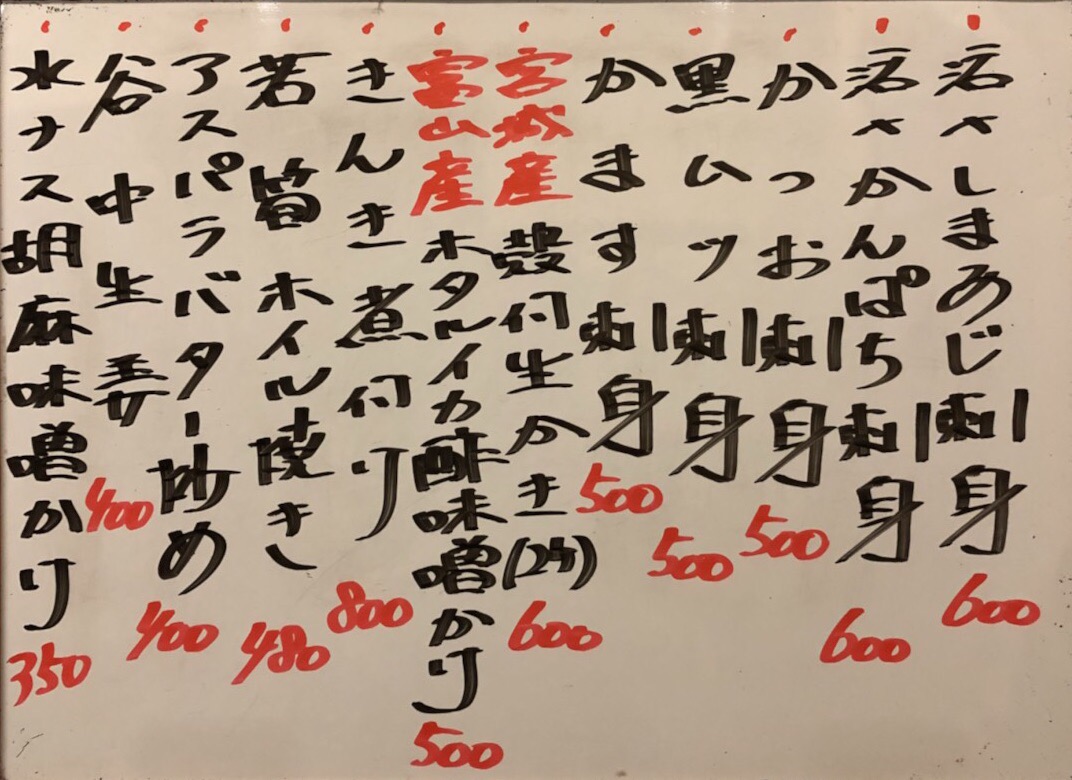 活〆しまあじ刺身 600
活〆かんぱち刺身 600
かつお刺身 500
黒ムツ刺身 500
かます刺身 500
宮城産 殻付生かき(2ケ) 600
富山産 ホタルイカ酢味噌かけ 500
きんき煮付け 800
若筍ホイル焼き 480
アスパラバター炒め 400
谷中生姜 400
水ナス胡麻味噌かけ 350